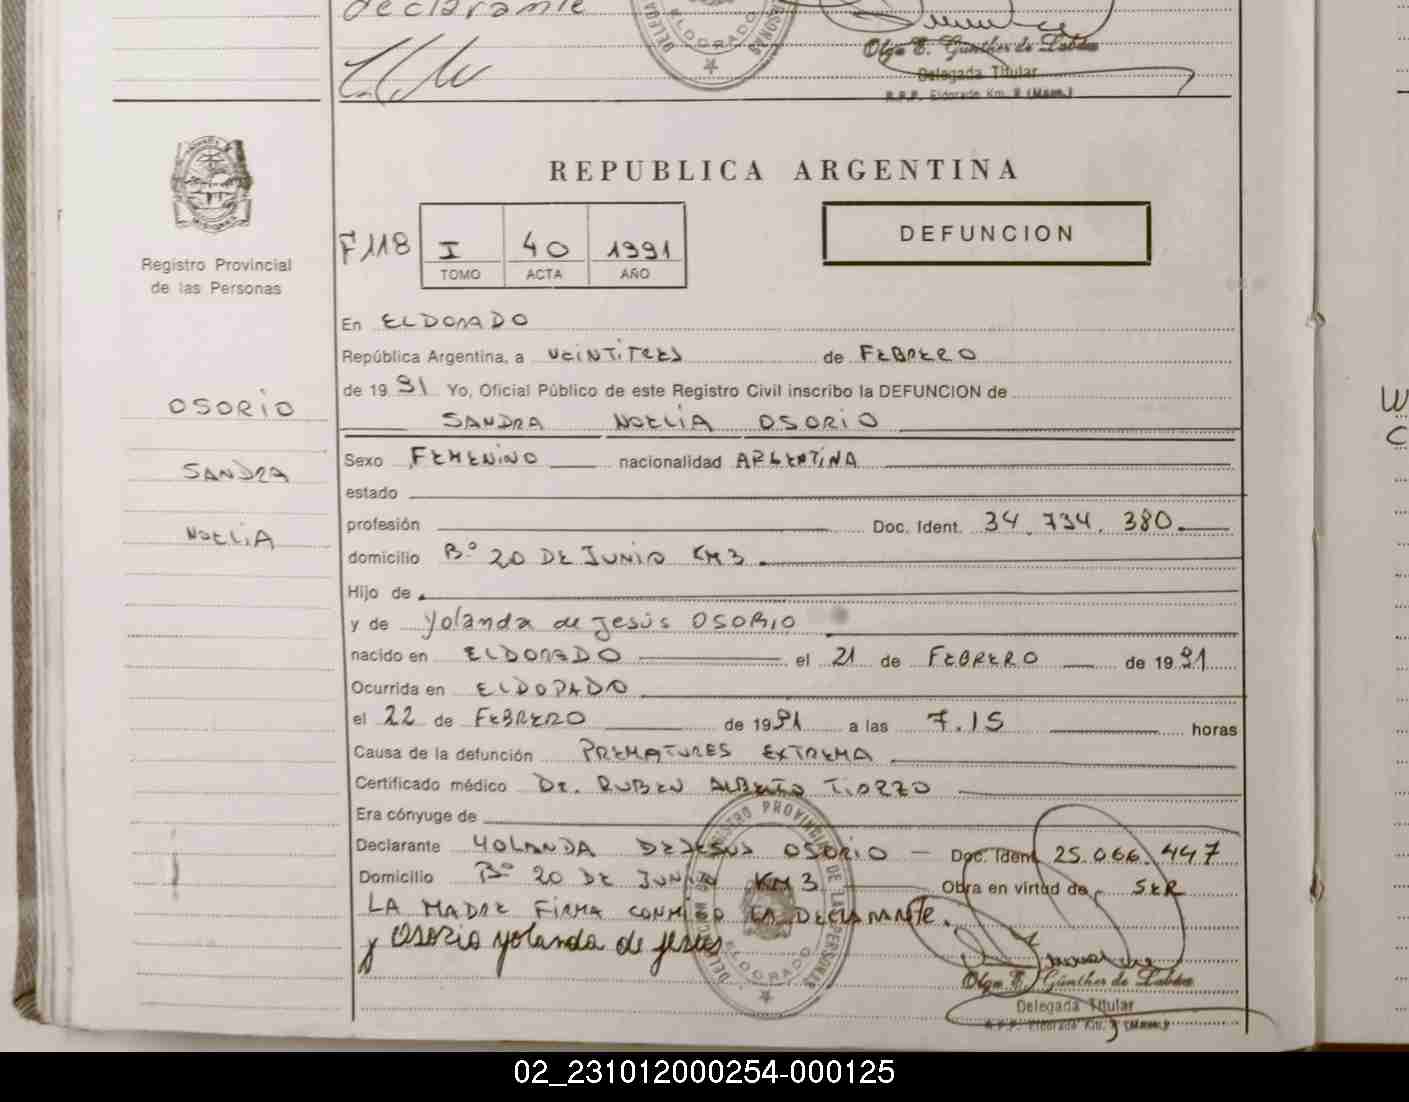 declarante
ELDORADO
Olga E. Günther de
Delegada Titular
R.P.P. Eldorado Km. 9 (Mnes.)
REPUBLICA ARGENTINA
F118 I 40 1991
TOMO ACTA AÑO
DEFUNCION
Registro Provincial
de las Personas
En ELDORADO
República Argentina, a VEINTITRES de FEBRERO
de 1991 Yo, Oficial Público de este Registro Civil inscribo la DEFUNCION de
SANDRA NOELIA OSORIO
OSORIO
SANDRA
NOELIA
Sexo FEMENINO nacionalidad ARGENTINA
estado
profesión Doc. Ident. 34.734.380
domicilio Bº 20 DE JUNIO KM3
Hijo de
y de Yolanda de Jesús OSORIO
nacido en ELDORADO el 21 de FEBRERO de 1991
Ocurrida en ELDORADO
el 22 de FEBRERO de 1991 a las 7.15 horas
Causa de la defunción PREMATURES EXTREMA
Certificado médico DR. RUBEN ALBERTO TIOZZO
Era cónyuge de
Declarante YOLANDA DE JESUS OSORIO Doc. Ident 25.066.447
Domicilio Bº 20 DE JUNIO KM3 Obra en virtud de SER
LA MADRE FIRMA CONMIGO LA DECLARANTE.
Osorio yolanda de jesus
REGISTRO PROVINCIAL DE LAS PERSONAS
ELDORADO
Olga E. Günther de
Delegada Titular
R.P.P. Eldorado Km. 9 (Mnes.)
02_231012000254-000125